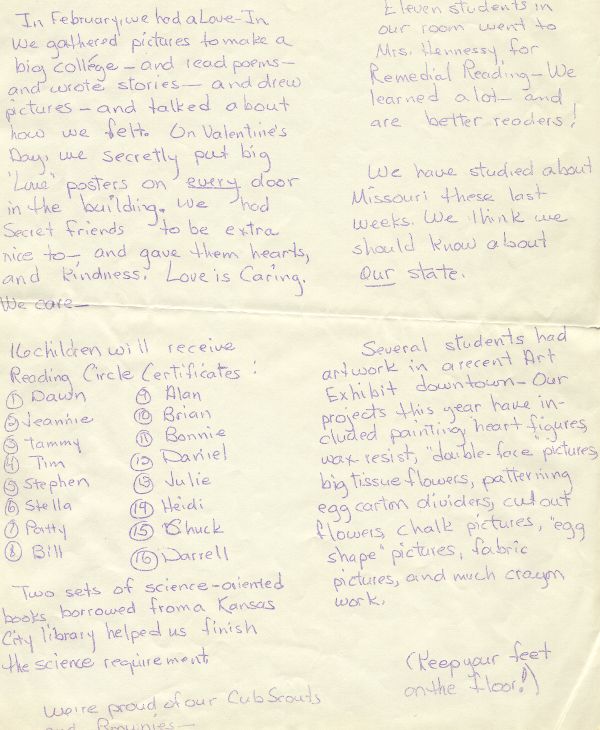 In February, we had a Love-In
We gathered pictures to make a
big collége - and read poems -
and wrote stories - and drew
pictures - and talked about
how we felt. On Valentine's
Day, we secretly put big
"Love" posters on every door
in the building. We had
Secret friends to be extra
nice to - and gave them hearts,
and kindness. Love is Caring.
We care -
16 children will receive
Reading Circle Certificates:
① Dawn
② Jeannie
③ Tammy
④ Tim
⑤ Stephen
⑥ Stella
⑦ Patty
⑧ Bill
⑨ Alan
⑩ Brian
⑪ Bonnie
⑫ Daniel
⑬ Julie
⑭ Heidi
⑮ Chuck
⑯ Darrell
Two sets of science-oriented
books borrowed from a Kansas
City library helped us finish
the science requirement
We're proud of our Cub Scouts
and Brownies -
Eleven students in
our room went to
Mrs. Hennessy for
Remedial Reading - We
learned a lot - and
are better readers!
We have studied about
Missouri these last
weeks. We think we
should know about
Our state.
Several students had
artwork in a recent Art
Exhibit downtown - Our
projects this year have in-
cluded painting, heart figures,
wax-resist, "double-face" pictures,
big tissue flowers, patterning
egg carton dividers, cut out
flowers, chalk pictures, "egg
shape" pictures, fabric
pictures, and much crayon
work.
(Keep your feet
on the floor!)